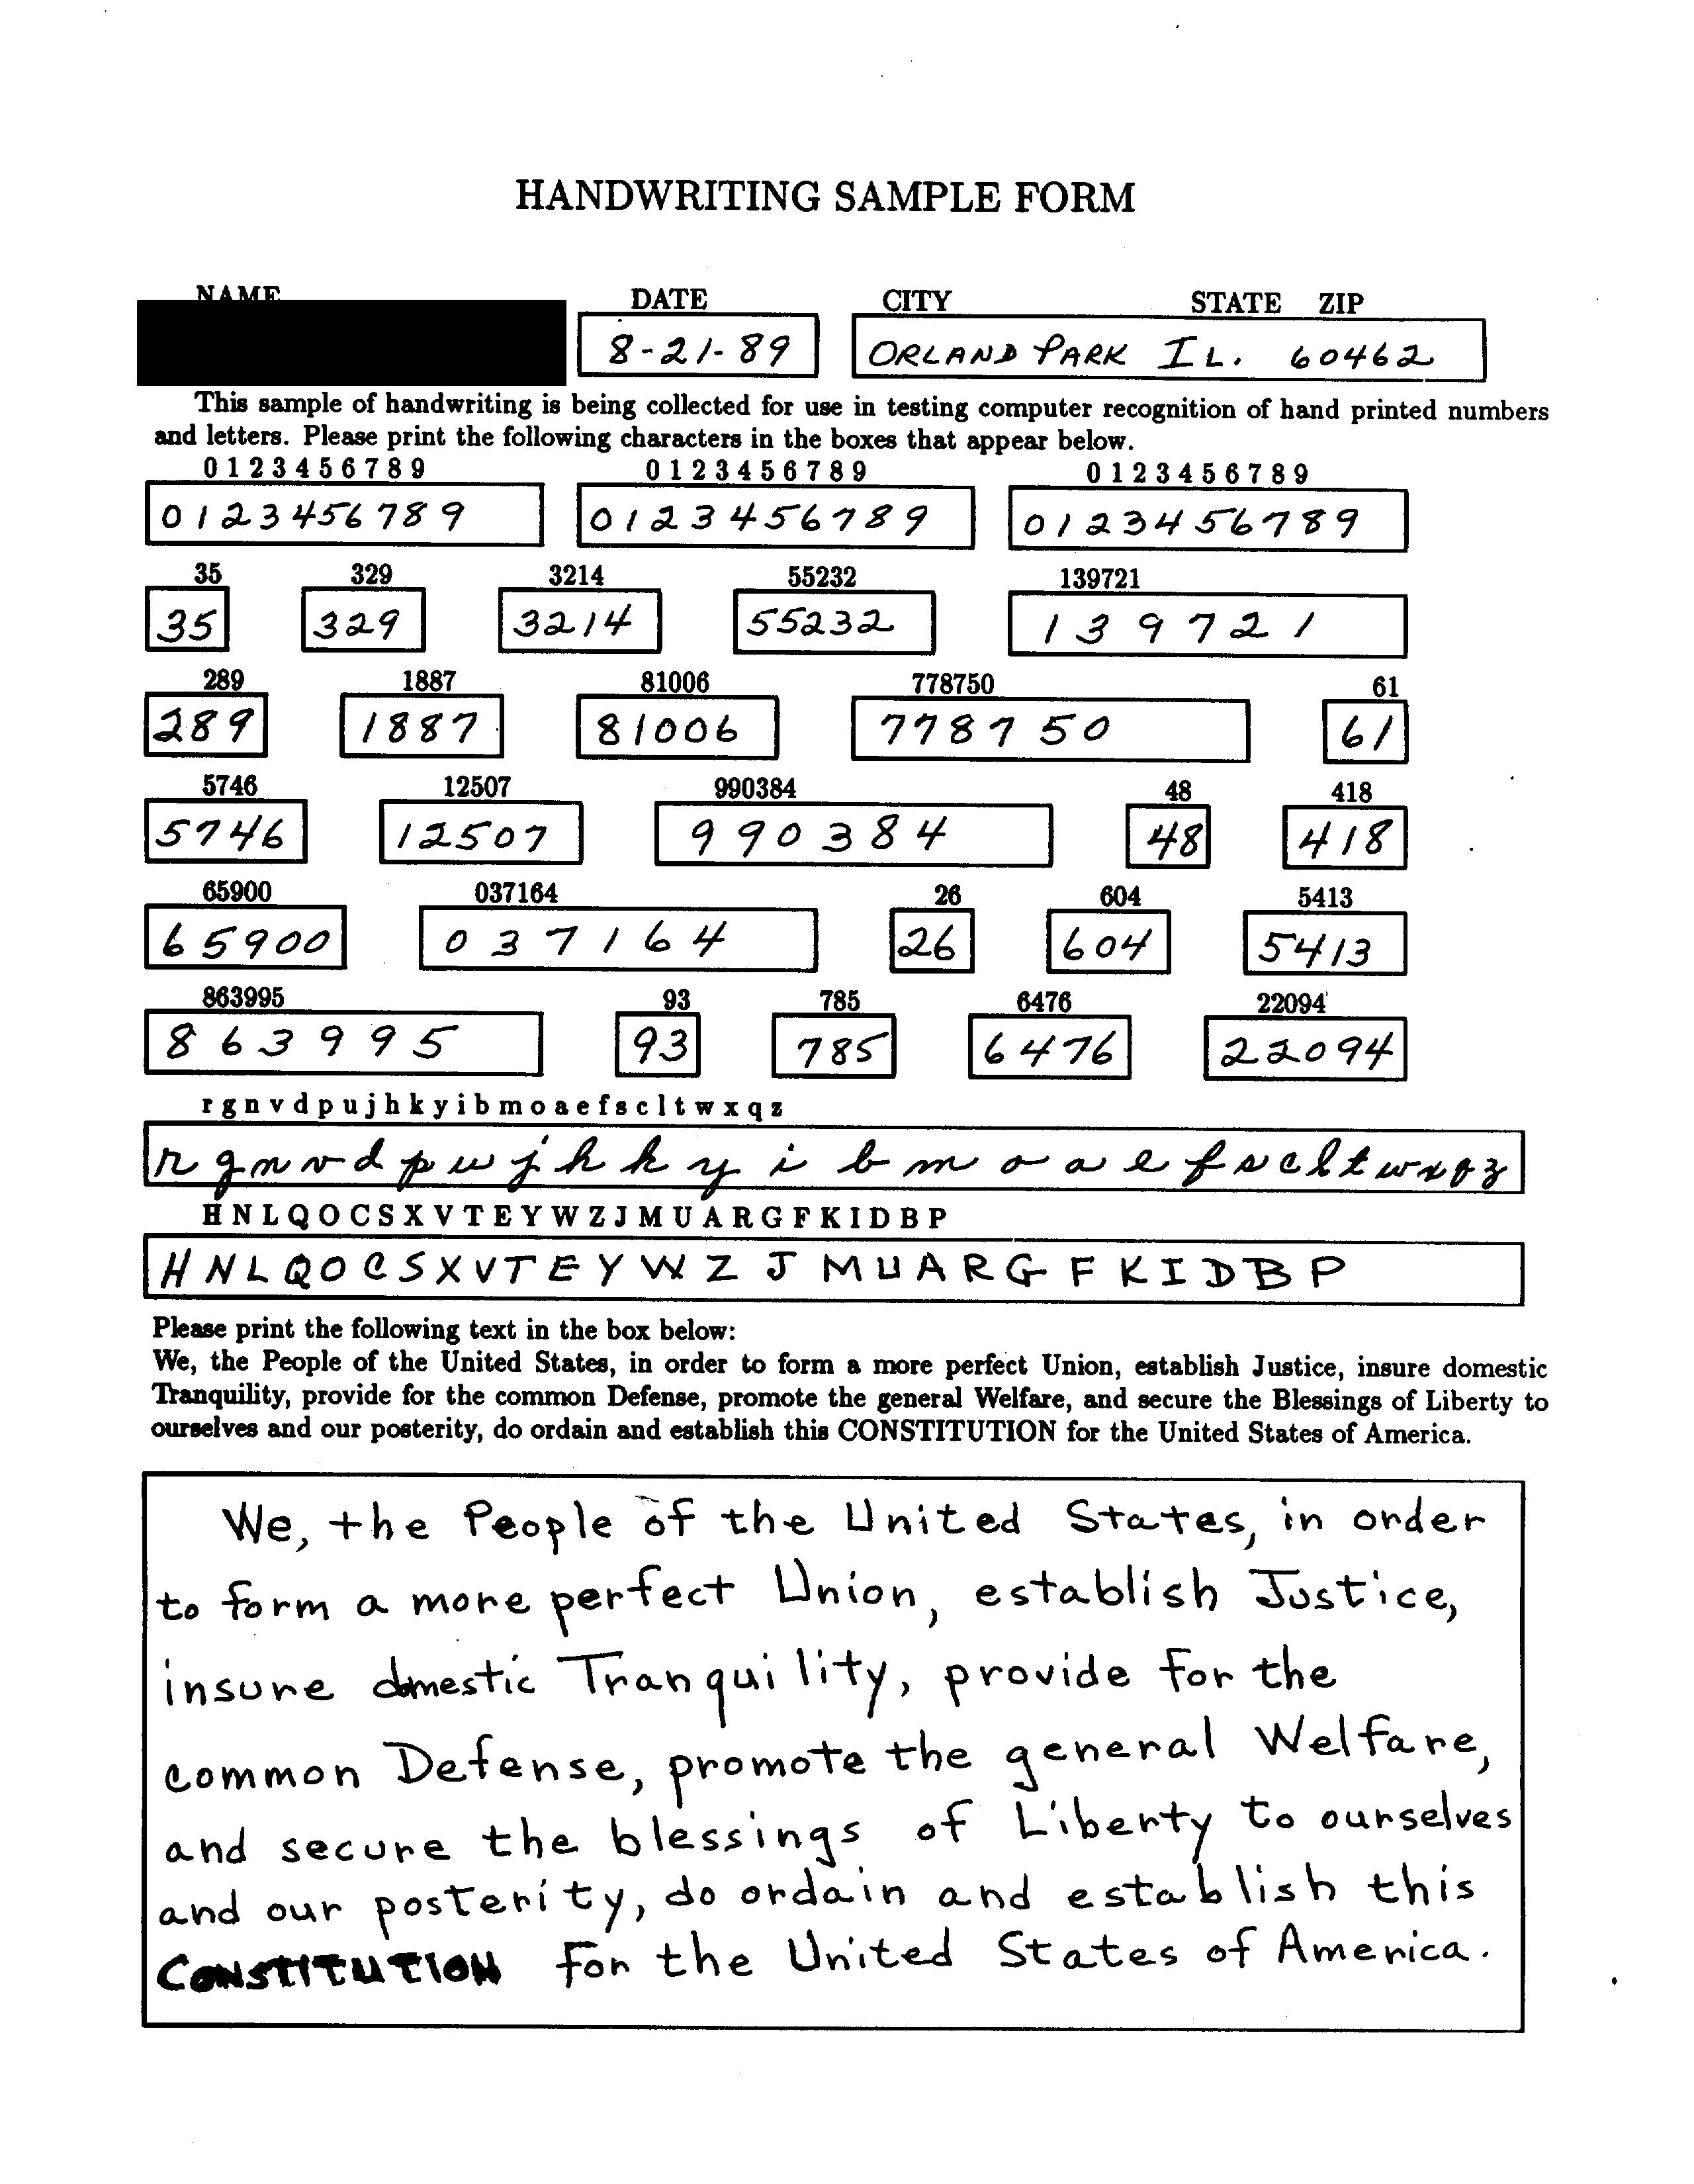 HANDWRITING SAMPLE FORM
NAME DATE CITY STATE ZIP
8-21-89 ORLAND PARK IL. 60462
This sample of handwriting is being collected for use in testing computer recognition of hand printed numbers
and letters. Please print the following characters in the boxes that appear below.
0 1 2 3 4 5 6 7 8 9 0 1 2 3 4 5 6 7 8 9 0 1 2 3 4 5 6 7 8 9
0123456789 0123456789 0123456789
35 329 3214 55232 139721
35 329 3214 55232 139721
289 1887 81006 778750 61
289 1887 81006 778750 61
5746 12507 990384 48 418
5746 12507 990384 48 418
65900 037164 26 604 5413
65900 037164 26 604 5413
863995 93 785 6476 22094
863995 93 785 6476 22094
r g n v d p u j h k y i b m o a e f s c l t w x q z
r g n v d p u j h k y i b m o a e f s c l t w x q z
H N L Q O C S X V T E Y W Z J M U A R G F K I D B P
H N L Q O C S X V T E Y W Z J M U A R G F K I D B P
Please print the following text in the box below:
We, the People of the United States, in order to form a more perfect Union, establish Justice, insure domestic
Tranquility, provide for the common Defense, promote the general Welfare, and secure the Blessings of Liberty to
ourselves and our posterity, do ordain and establish this CONSTITUTION for the United States of America.
We, the People of the United States, in order
to form a more perfect Union, establish Justice,
insure domestic Tranquility, provide for the
common Defense, promote the general Welfare,
and secure the blessings of Liberty to ourselves
and our posterity, do ordain and establish this
CONSTITUTION for the United States of America.